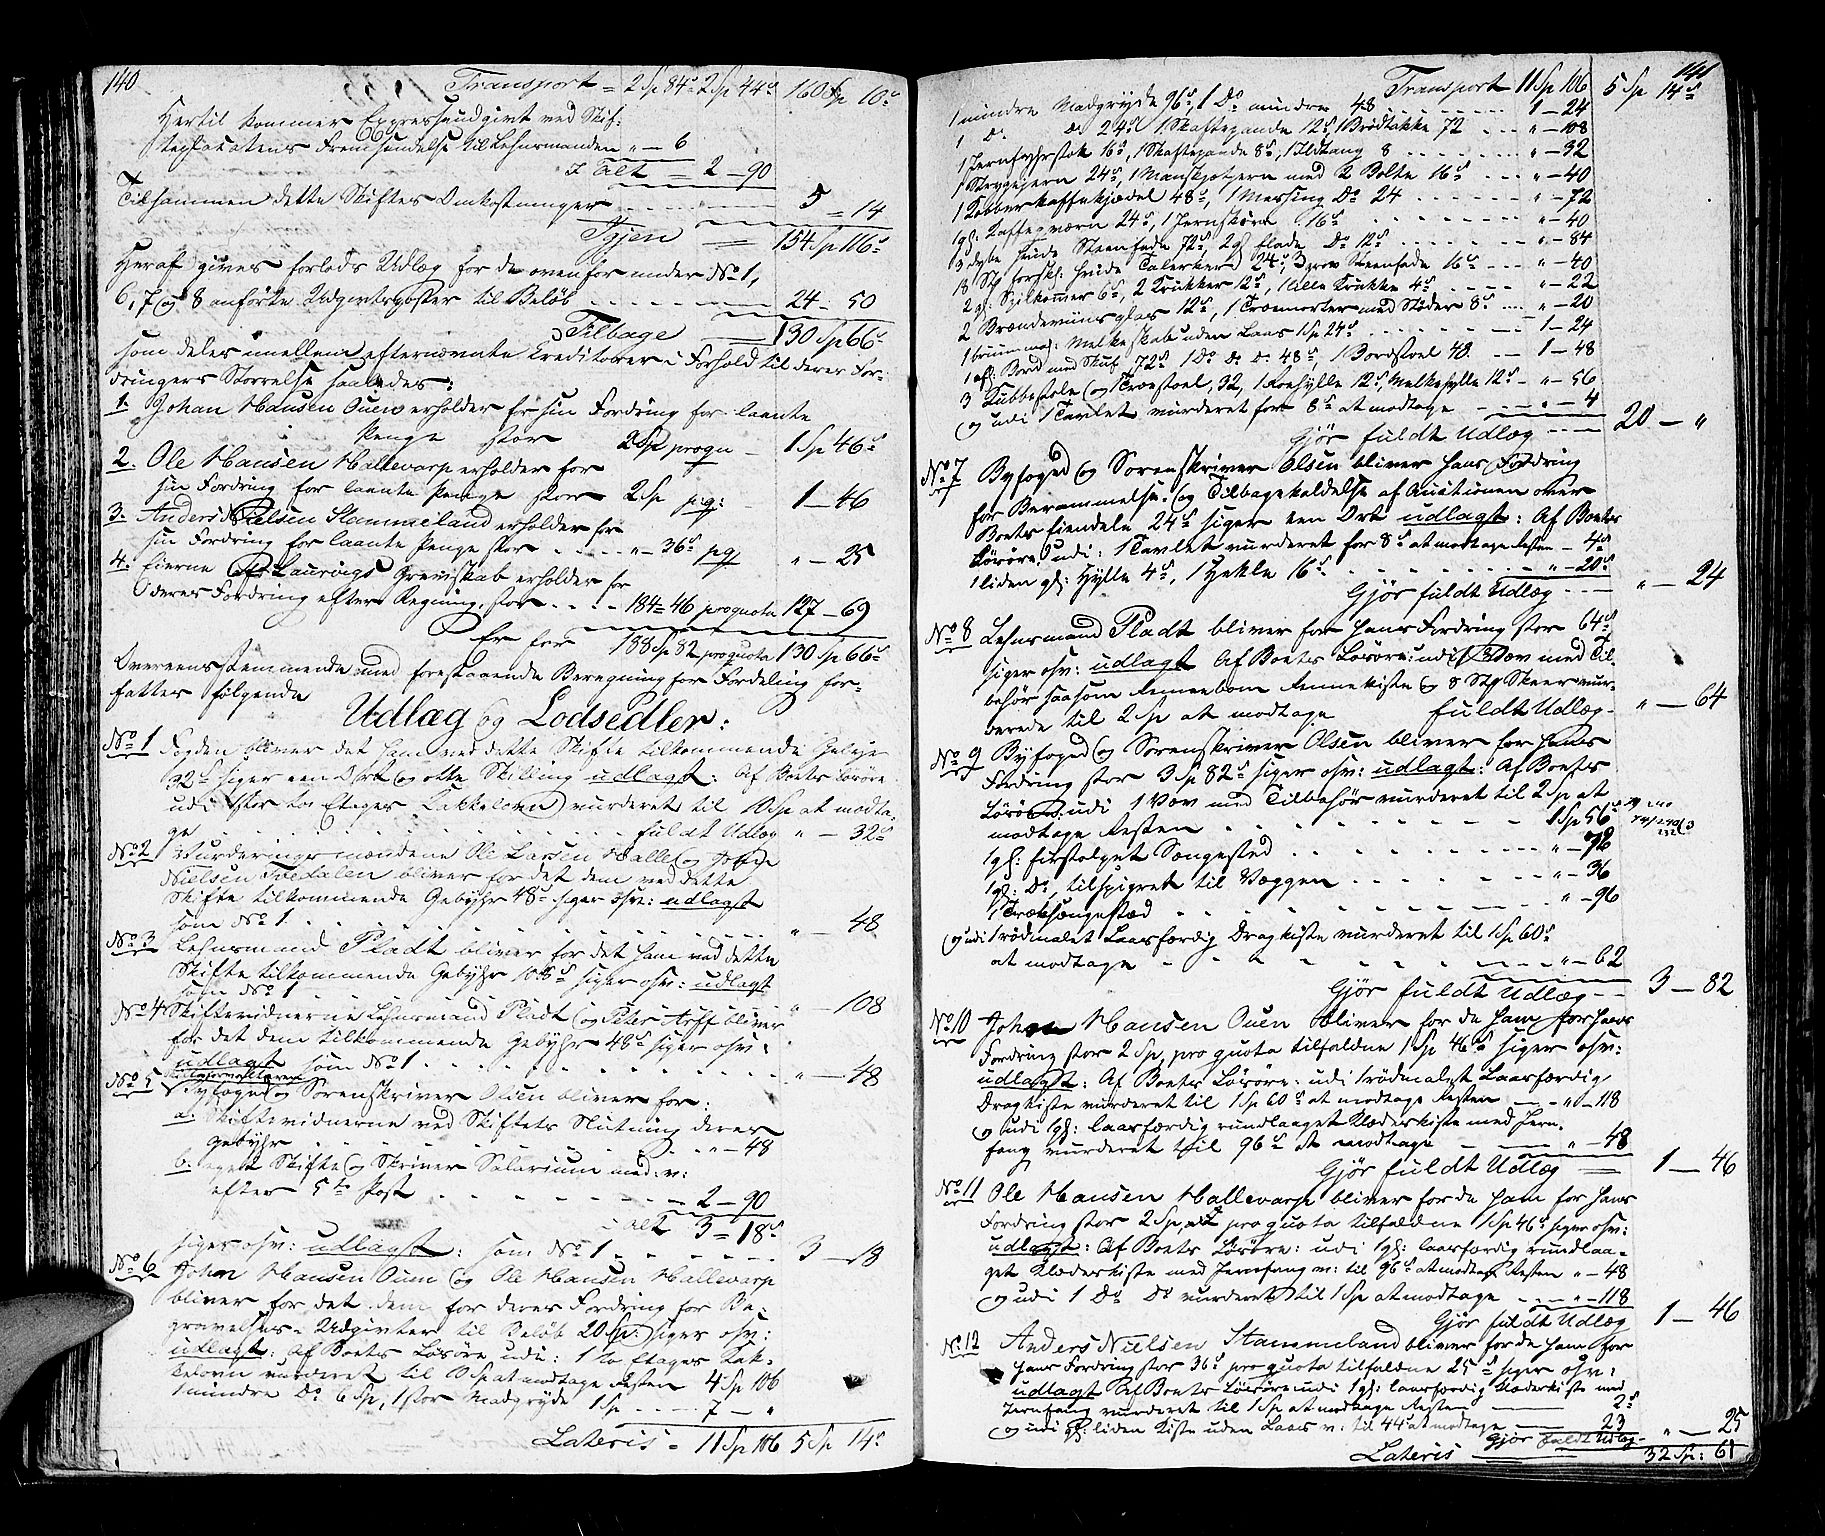 140
Transport = 2 Sp 84 s 2 Sp 44 s 160 Sp 10 s
Hertil kommer Expresseudgivt ved Skif-
teplacatens Fremsendelse til Lehnsmanden " — 6
I Alt = 2 — 90
Tilsammen dette Skiftes Omkostninger 5 = 14
Igjen = 154 Sp 116 s
Heraf gives forlods Udlæg for de ovenfor under No 1,
6, 7 og 8 anførte Udgivtsposter til Beløb 24 = 50
Tilbage 130 Sp 66 s
som deles imellem efternævnte Creditorer i Forhold til deres For-
dringers Størrelse saaledes:
1. Johan Hansen Ouen erholder for sin Fordring for laante
Penge stor 2 Sp pro qu — 1 Sp 46 s
2. Ole Hansen Hallevarp erholder for
sin Fordring for laante Penge stor 2 Sp p.q: 1 — 46
3. Anders Nielsen Stammeland erholder for
sin Fordring for laante Penge stor " — 36 s pq " — 25
4. Eierne af Laurvigs Grevskab erholder for
deres Fordring efter Regning, stor 184 = 46 pro quota 127 — 69
Er for 188 Sp 82 pro quota 130 Sp 66 s
Overeensstemmende med forestaaende Beregning for Fordeling for-
fattes følgende
Udlæg og Lodsedler:
No 1 Fogden bliver det ham ved dette Skifte tilkommende Gebyr
32 s siger een Ort og otte Skilling udlagt: Af Boets Løsøre
udi stor to Etages Kakkelovn vurderet til 10 Sp at modta-
ge fuldt Udlæg " — 32 s
No 2 Vurderingsmændene Ole Larsen Halle og
Nielsen Tvedalen bliver for det dem ved dette
Skifte tilkommende Gebyhr 48 s siger osv: udlagt
som No 1 " — 48
No 3 Lehnsmand Pladt bliver for det ham ved dette
Skifte tilkommende Gebyhr 108 s siger osv: udlagt
som No 1 " — 108
No 4 Skiftevidnerne Lehnsmand Pladt og Peter Arff bliver
for det dem tilkommende Gebyhr 48 s siger osv:
udlagt som No 1 " — 48
No 5 Byfoged og Sorenskriver Olsen bliver for:
a. Skiftevidnerne ved Skiftets Slutning deres
Gebyhr " — 48
b. eget Skifte og Skriver Salarium med: v:
efter 5te Post 2 — 90
alt 3 = 18 s
siger osv: udlagt: som No 1 3 — 18
No 6 Johan Hansen Ouen og Ole Hansen Hallevarp
bliver for det dem for deres Fordring for Be-
gravelses-Udgivter til Beløb 20 Sp: siger osv:
udlagt: Af Boets Løsøre udi: 1 to Etages Kak-
kelovn vurderet til 10 Sp at modtage Resten 4 Sp 106
1 mindre Do 6 Sp, 1 stor Madgryde 1 Sp 7 — "
Lateris = 11 Sp 106 5 Sp 14 s
141
Transport 11 Sp 106 5 Sp 14 s
1 mindre Madgryde 96 s, 1 Do mindre 48 1 — 24
1 Do Do 24 s 1 Skaftepande 12 s, 1 Brødtakke 72 " — 108
1 Jernfyhrstok 16 s, 1 Skaftepande 8 s, 1 Ildtang 8 " — 32
1 Strygejern 24 s, 1 Manskjetjern med 2 Bolte 16 s " — 40
1 Kobberkaffekjædel 48 s, 1 Messing Do 24 " — 72
1 gl: Kaffeqværn 24 s, 1 Jernskōen 16 s " — 40
3 dybe hvide Steenfade 72 s, 2 gl flade Do 12 s " — 84
18 Stk forskj: hvide Talerkener 24 s, 3 grov Steenfade 16 s " — 40
2 gl. Spilkommer 6 s, 2 Krukker 12 s, 1 lille Krukke 4 s " — 22
2 Brændeviinsglas 12 s, 1 Træmorter med Støder 8 s " — 20
1 bruunmal: Melkeskab uden Laas 1 Sp 24 s 1 — 24
1 afl: Bord med Skuf 72 s 1 Do Do Do 48 s, 1 Bordstoel 48. 1 — 48
3 Kubbestole og 1 Træstoel 32, 1 Kohylle 12 s, Melkehylle 12 s " — 56
og udi 1 Tavlet vurderet for 8 s at modtage " — 4
Gjør fuldt Udlæg 20 — "
No 7 Byfoged og Sorenskriver Olsen bliver hans Fordring
for Berammelse og Tilbagekaldelse af Auctionen over
Boets Eiendele 24 s siger een Ort udlagt: Af Boets
Løsøre udi: 1 Tavlet vurderet for 8 s at modtage Resten — 4 s
1 liden gl: Hylle 4 s, 1 Hekle 16 s " — 20 s
Gjør fuldt Udlæg " — 24
No 8 Lehnsmand Pladt bliver for hans Fordring stor 64 s
siger osv: udlagt Af Boets Løsøre: udi 1 Væv med Til-
behør saasom Rennebom Rennekiste og 8 Stk Skeer vur-
derede til 2 Sp at modtage fuldt Udlæg " — 64
No 9 Byfoged og Sorenskriver Olsen bliver for hans
Fordring stor 3 Sp 82 s siger osv: udlagt: Af Boets
Løsøre udi 1 Væv med Tilbehør vurderet til 2 Sp at
modtage Resten 1 Sp 56 s
1 gl: firstolpet Sengested " — 72
1 gl: Do, tilspigret til Væggen " — 36
1 Træksengested " — 96
og udi 1 rødmalet Laasfærdig Dragkiste vurderet til 1 Sp 60 s
at modtage " — 62
Gjør fuldt Udlæg 3 — 82
No 10 Johan Hansen Ouen bliver for de ham for hans
Fordring stor 2 Sp, pro quota tilfaldne 1 Sp 46 s siger osv:
udlagt: Af Boets Løsøre: udi 1 rødmalet Laasfærdig
Dragkiste vurderet til 1 Sp 60 s at modtage Resten " — 118
og udi 1 gl: laasfærdig rundlaaget Klæderkiste med Jern-
fang vurderet til 96 s at modtage " — 48
Gjør fuldt Udlæg 1 — 46
No 11 Ole Hansen Hallevarp bliver for de ham for hans
Fordring stor 2 Sp, pro quota tilfaldne 1 Sp 46 s siger osv:
udlagt: Af Boets Løsøre: udi 1 gl: laasfærdig rundlaa-
get Klæderkiste med Jernfang v: til 96 s at modtage Resten " — 48
og udi 1 Do Do vurderet til 1 Sp at modtage " — 118
Gjør fuldt Udlæg 1 — 46
No 12 Anders Nielsen Stammeland bliver for de ham for
hans Fordring stor 36 s pro quota tilfaldne 25 s siger osv:
udlagt Af Boets Løsøre udi 1 gl: laasfærdig Klæderkiste med
Jernfang vurderet til 1 Sp at modtage Resten 2 s
og udi 1 gl: liden Kiste uden Laas v: til 44 s at modtage 23
Gjør fuldt Udlæg " — 25
Lateris 32 Sp: 61